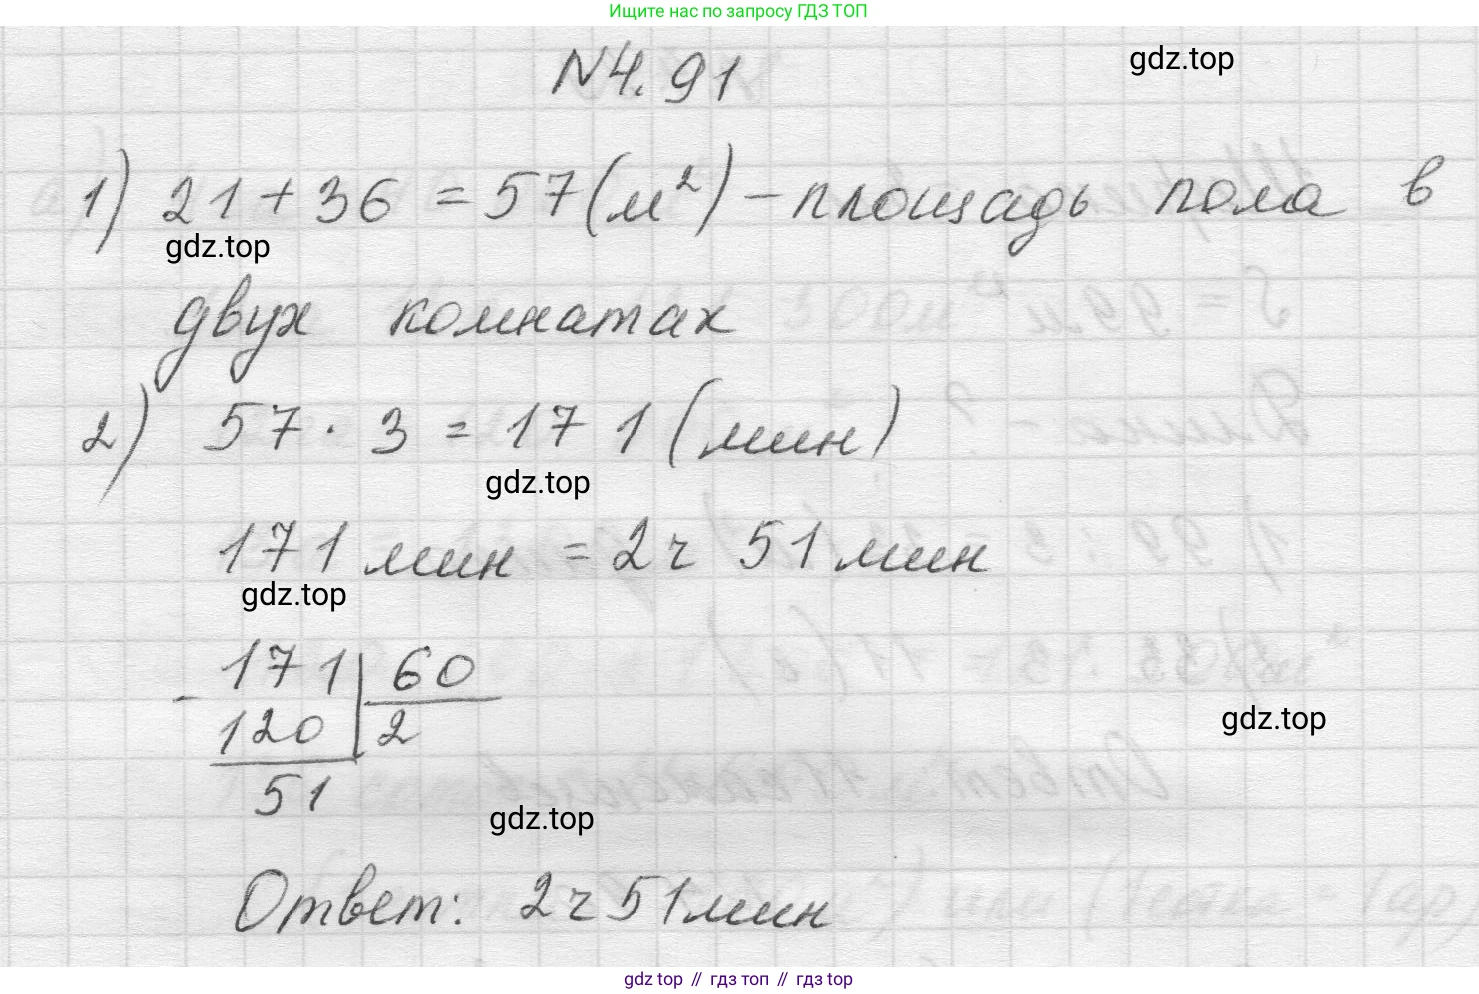 Ищите нас по запросу ГДЗ ТОП
N4.91
gdz.top
1) 21 + 36 = 57 (м²) – площадь пола в
gdz.top
двух комнатах
2) 57 · 3 = 171 (мин)
gdz.top
171 мин = 2 ч 51 мин
gdz.top
- 171 | 60
120 | 2
gdz.top
51
gdz.top
Ответ: 2 ч 51 мин
gdz top // гдз топ // гдз top